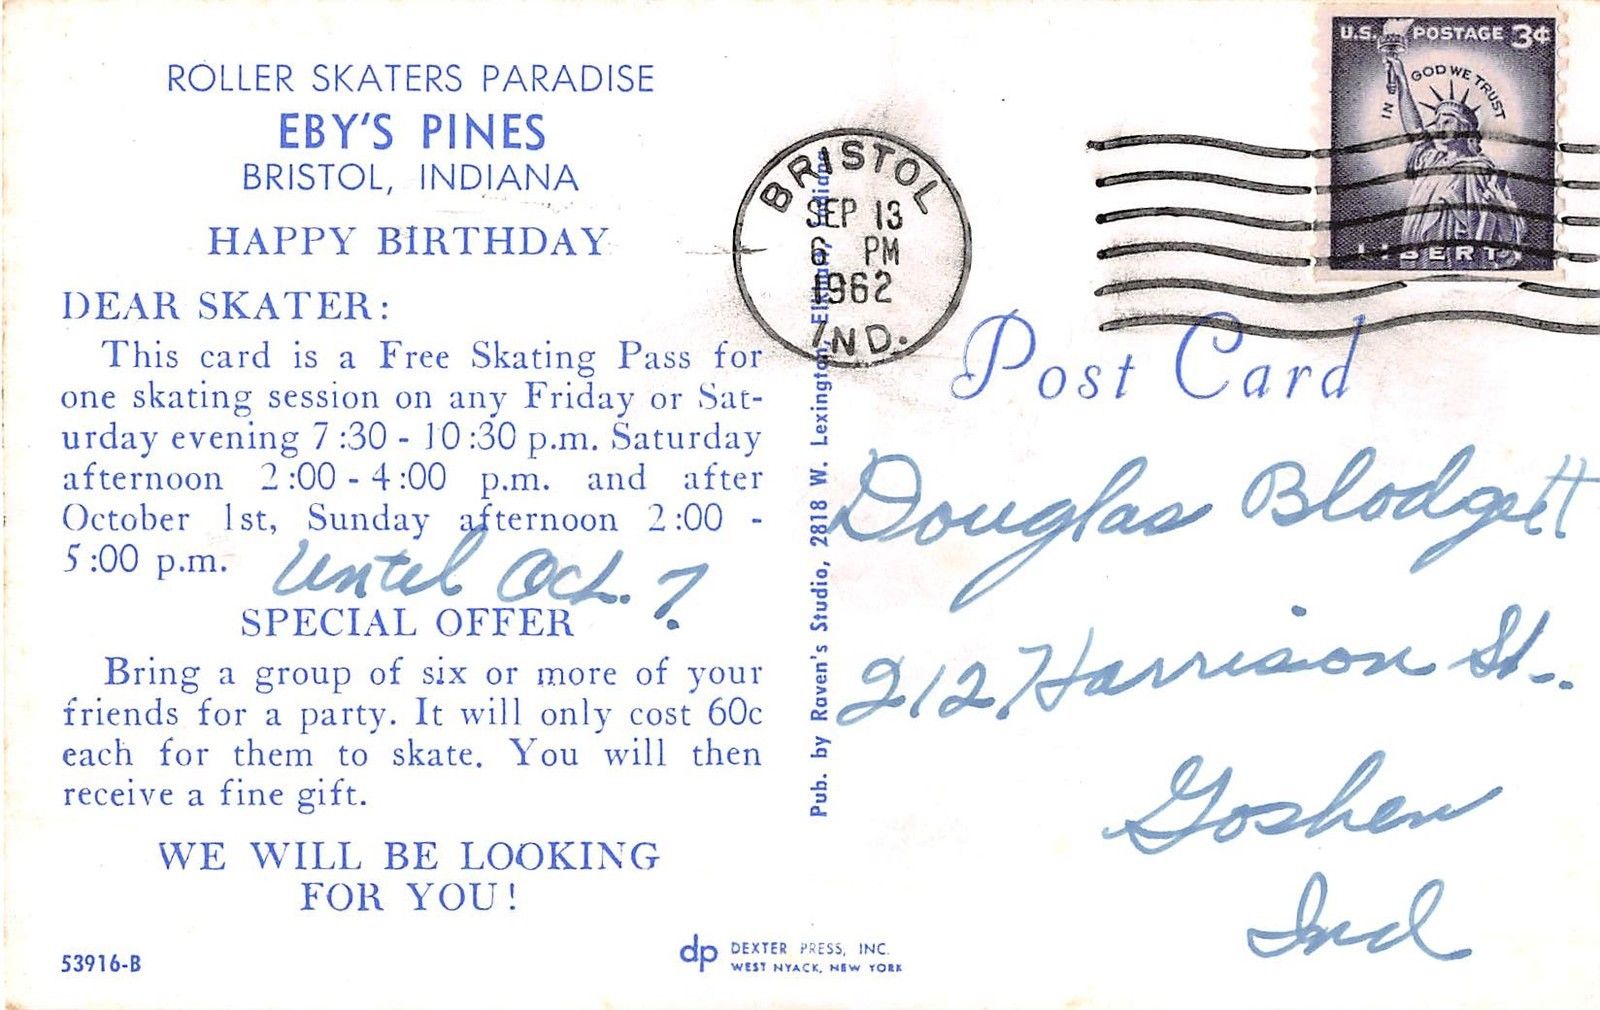 ROLLER SKATERS PARADISE
EBY'S PINES
BRISTOL, INDIANA
HAPPY BIRTHDAY
DEAR SKATER:
This card is a Free Skating Pass for
one skating session on any Friday or Sat-
urday evening 7:30 - 10:30 p.m. Saturday
afternoon 2:00 - 4:00 p.m. and after
October 1st, Sunday afternoon 2:00 -
5:00 p.m. Until Oct. 7.
SPECIAL OFFER
Bring a group of six or more of your
friends for a party. It will only cost 60c
each for them to skate. You will then
receive a fine gift.
WE WILL BE LOOKING
FOR YOU!
53916-B
dp DEXTER PRESS, INC.
WEST NYACK, NEW YORK
Pub. by Raven's Studio, 2818 W. Lexington, Elkhart, Indiana
BRISTOL
SEP 13
6 PM
1962
IND.
U.S. POSTAGE 3¢
IN GOD WE TRUST
LIBERTY
Post Card
Douglas Blodgett
212 Harrison St.
Goshen
Ind